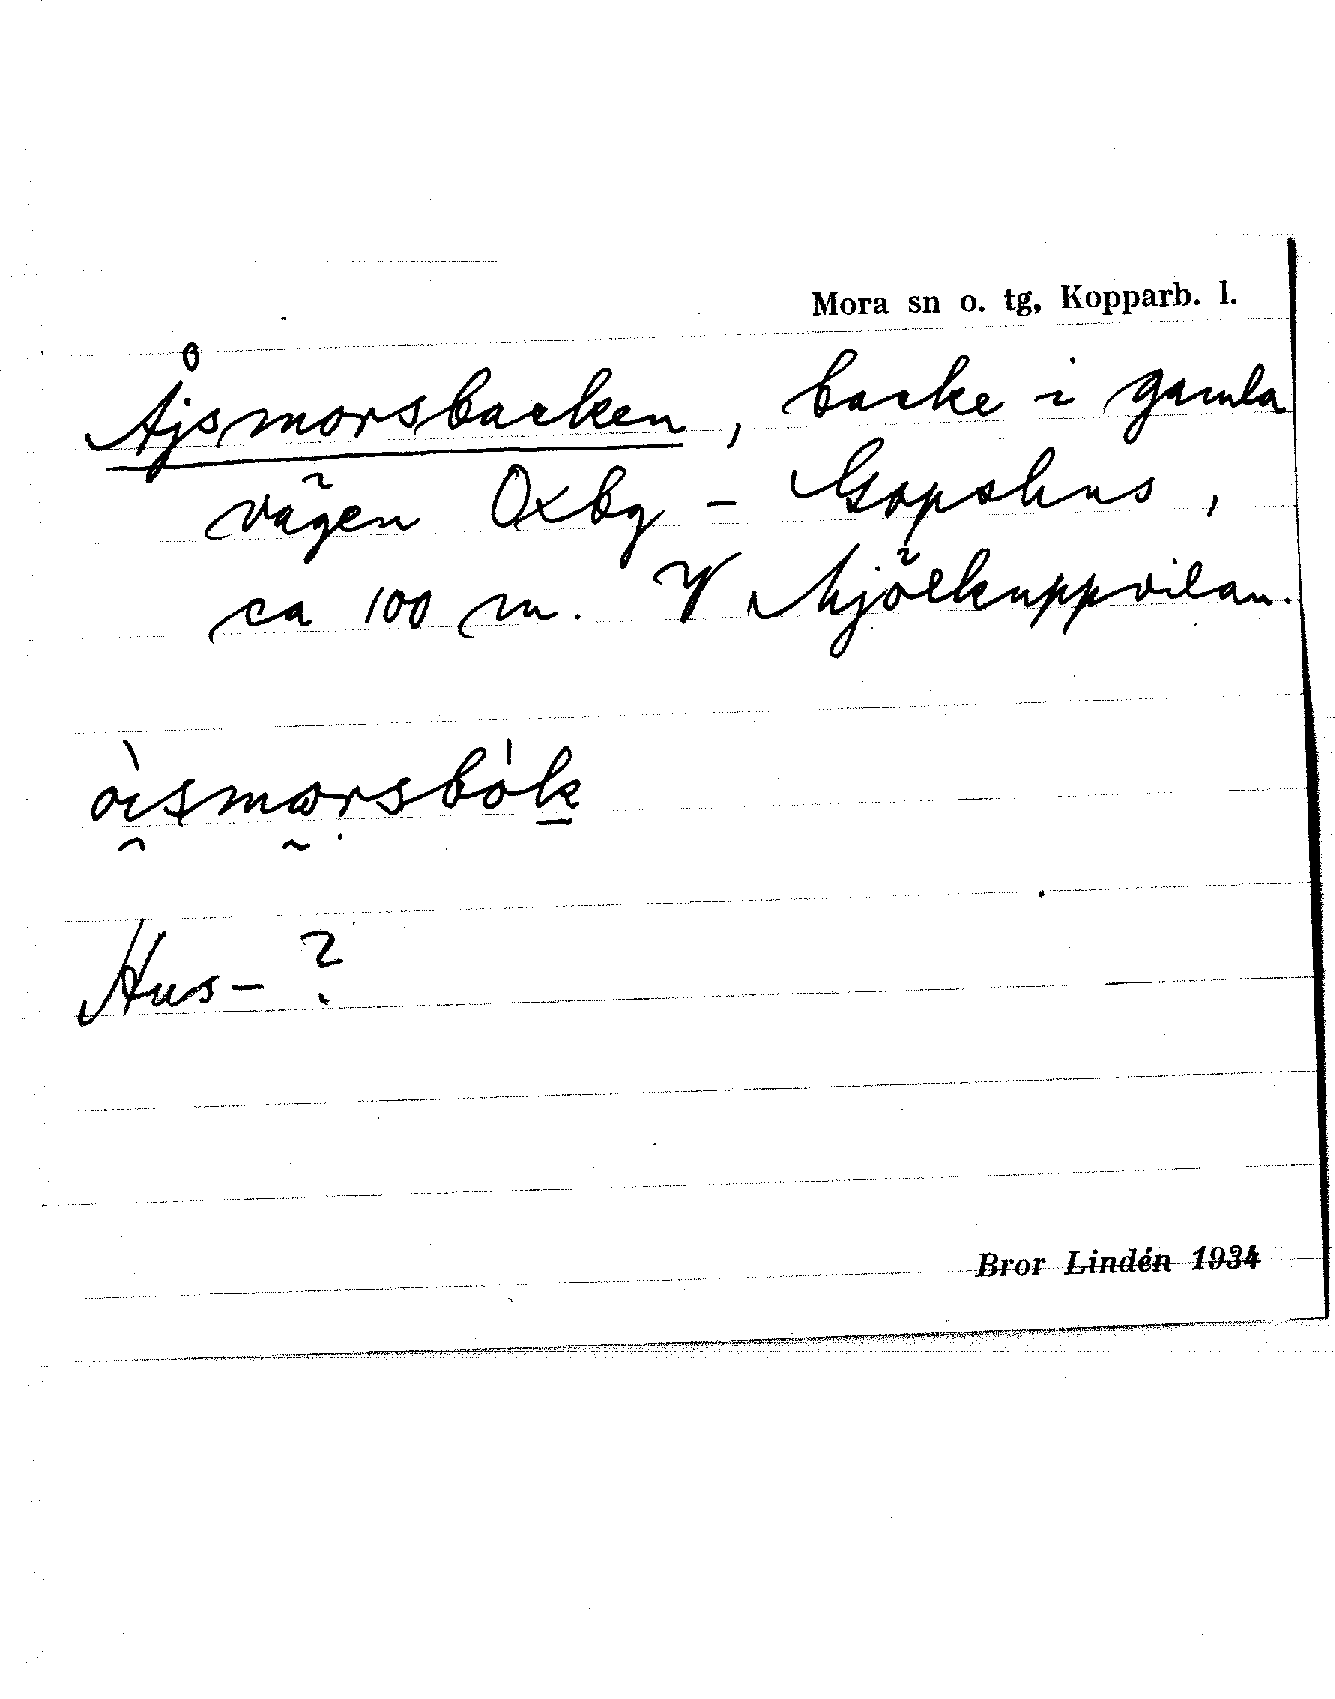 Mora sn o. tg, Kopparb. l.
Åjsmorsbacken, backe i gamla
vägen Oxbg - Gopshus,
ca 100 m. V Mjölkuppvilan.
òismorsbók
Hus- ?
Bror Lindén 1934